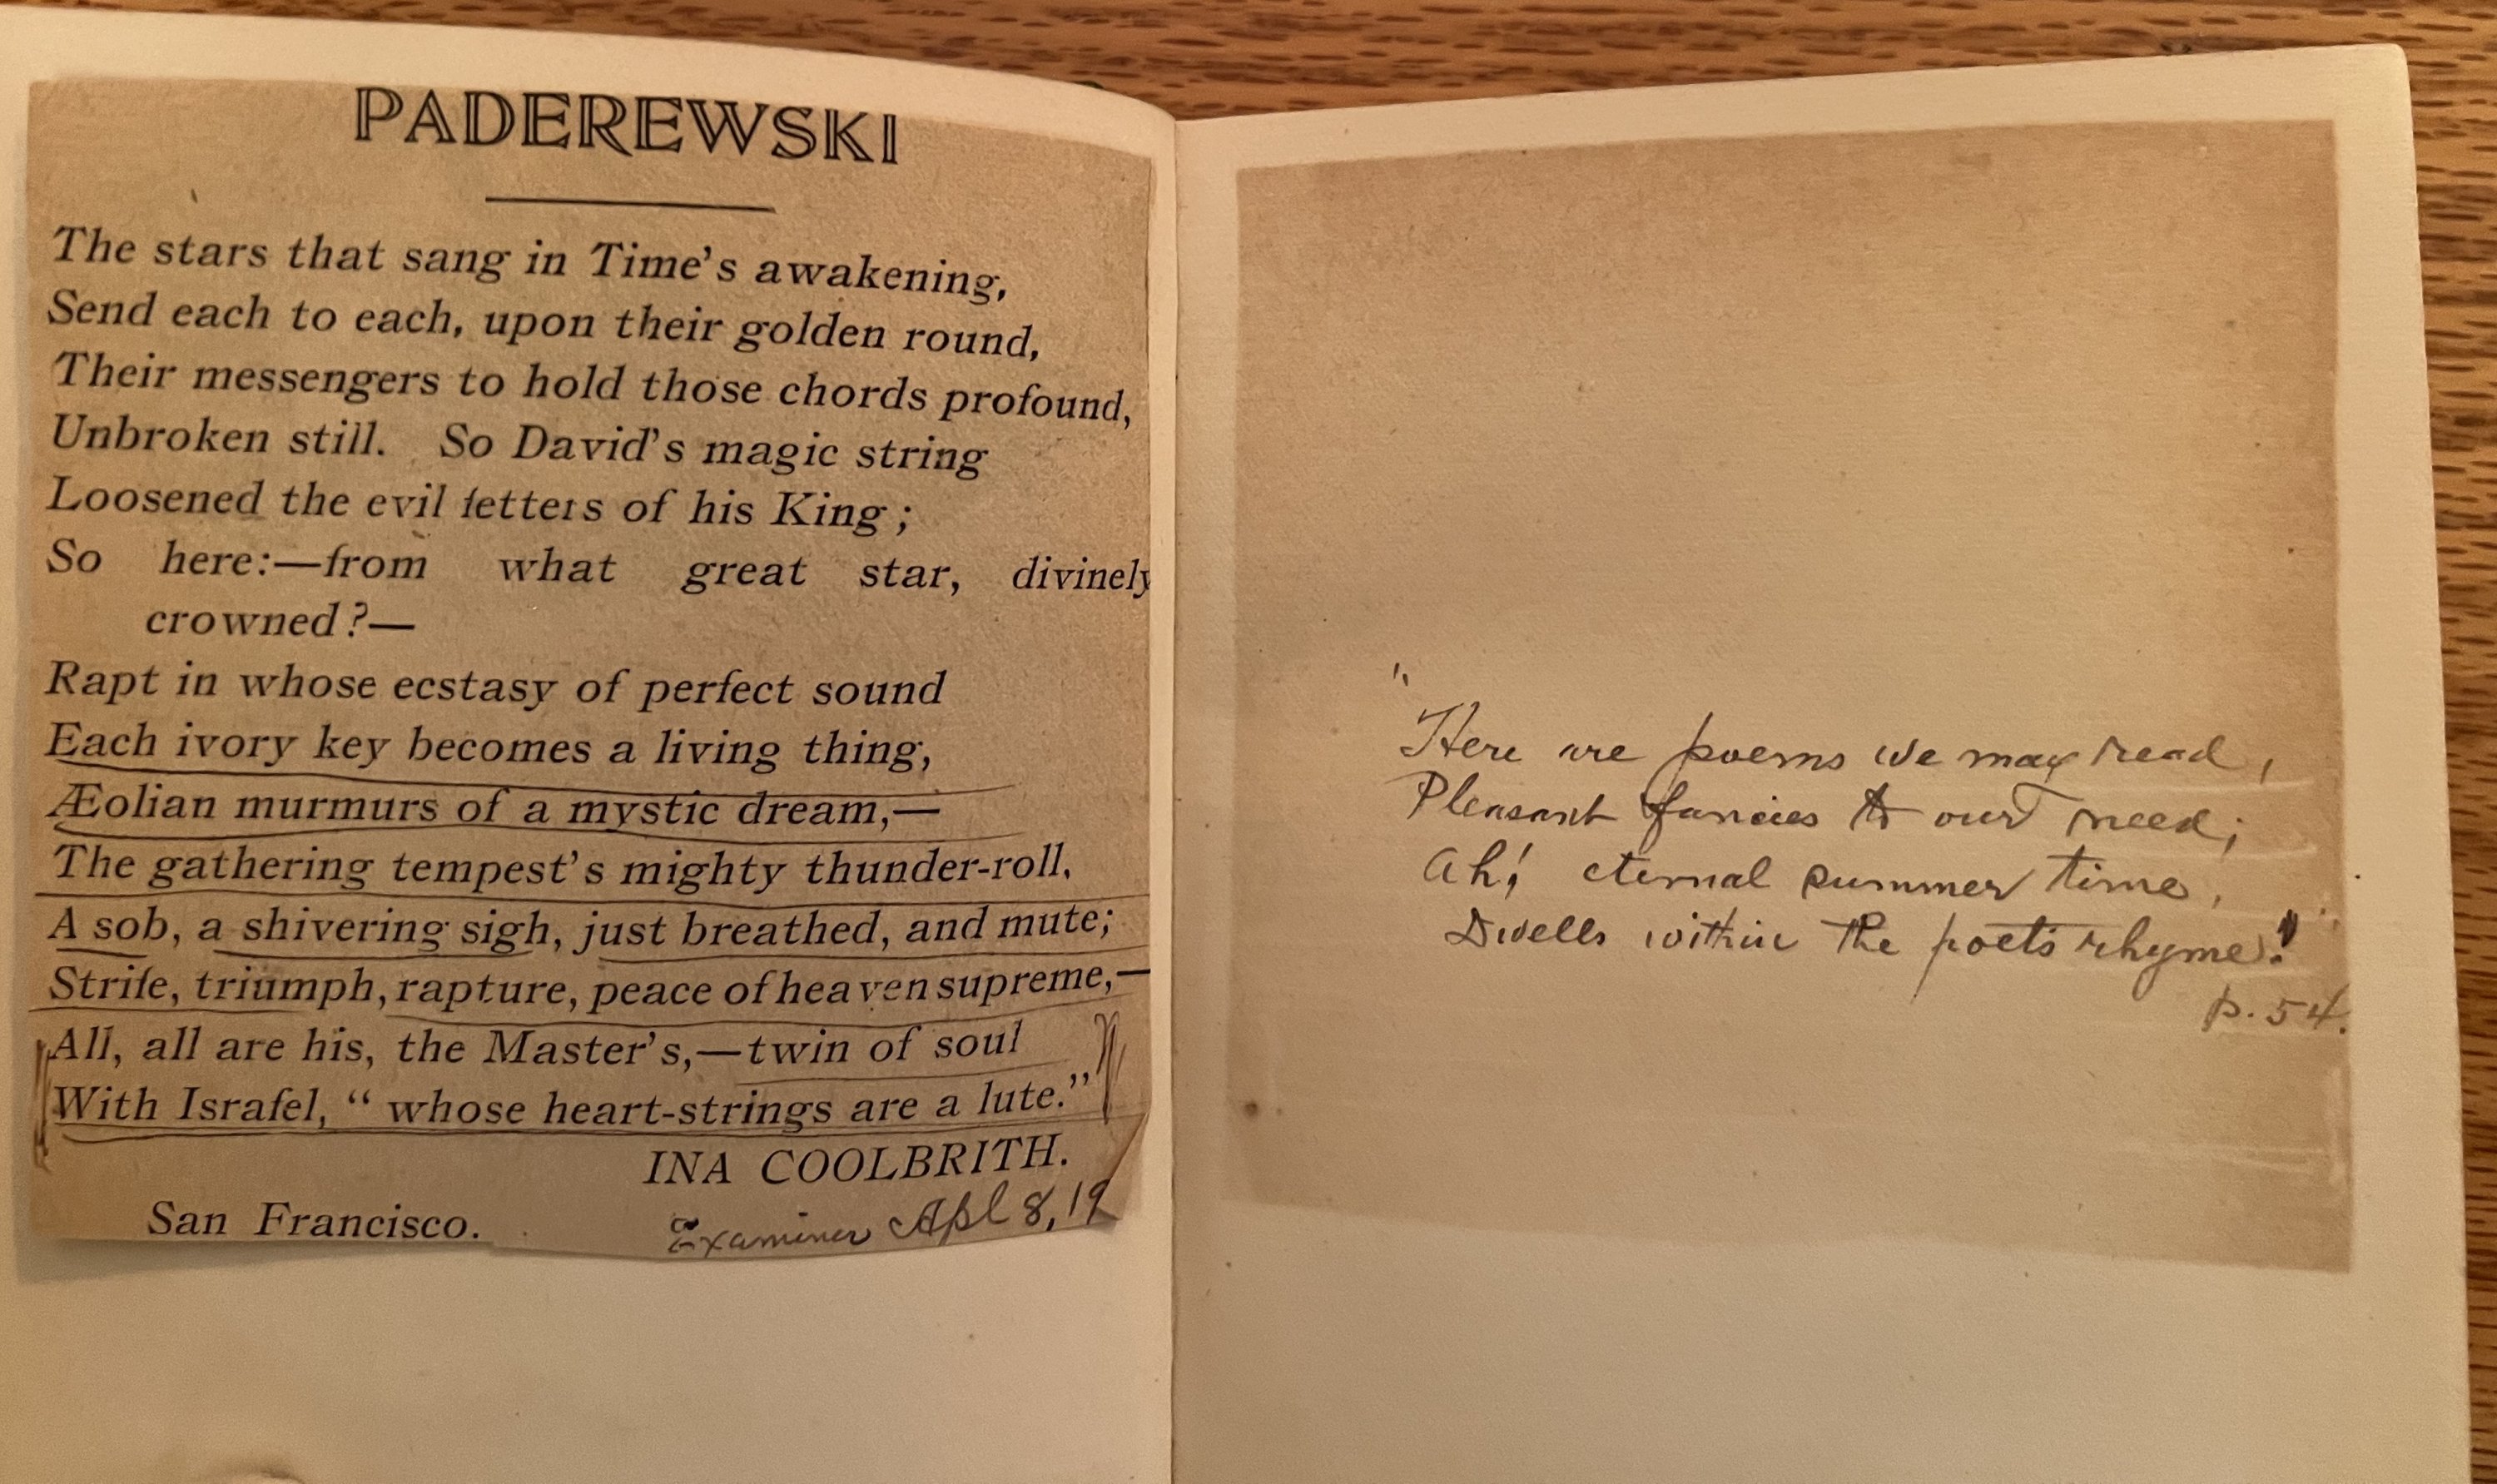 PADEREWSKI
The stars that sang in Time's awakening,
Send each to each, upon their golden round,
Their messengers to hold those chords profound,
Unbroken still. So David's magic string
Loosened the evil fetters of his King;
So here:—from what great star, divinely
crowned?—
Rapt in whose ecstasy of perfect sound
Each ivory key becomes a living thing,
Æolian murmurs of a mystic dream,—
The gathering tempest's mighty thunder-roll,
A sob, a shivering sigh, just breathed, and mute;
Strife, triumph, rapture, peace of heaven supreme,—
All, all are his, the Master's,—twin of soul
With Israfel, "whose heart-strings are a lute."
INA COOLBRITH.
San Francisco.
Examiner Apl 8, 19
"
Here are poems we may read,
Pleasant fancies to our need;
Ah! eternal summer time,
Dwells within the poet's rhyme."
p. 54.